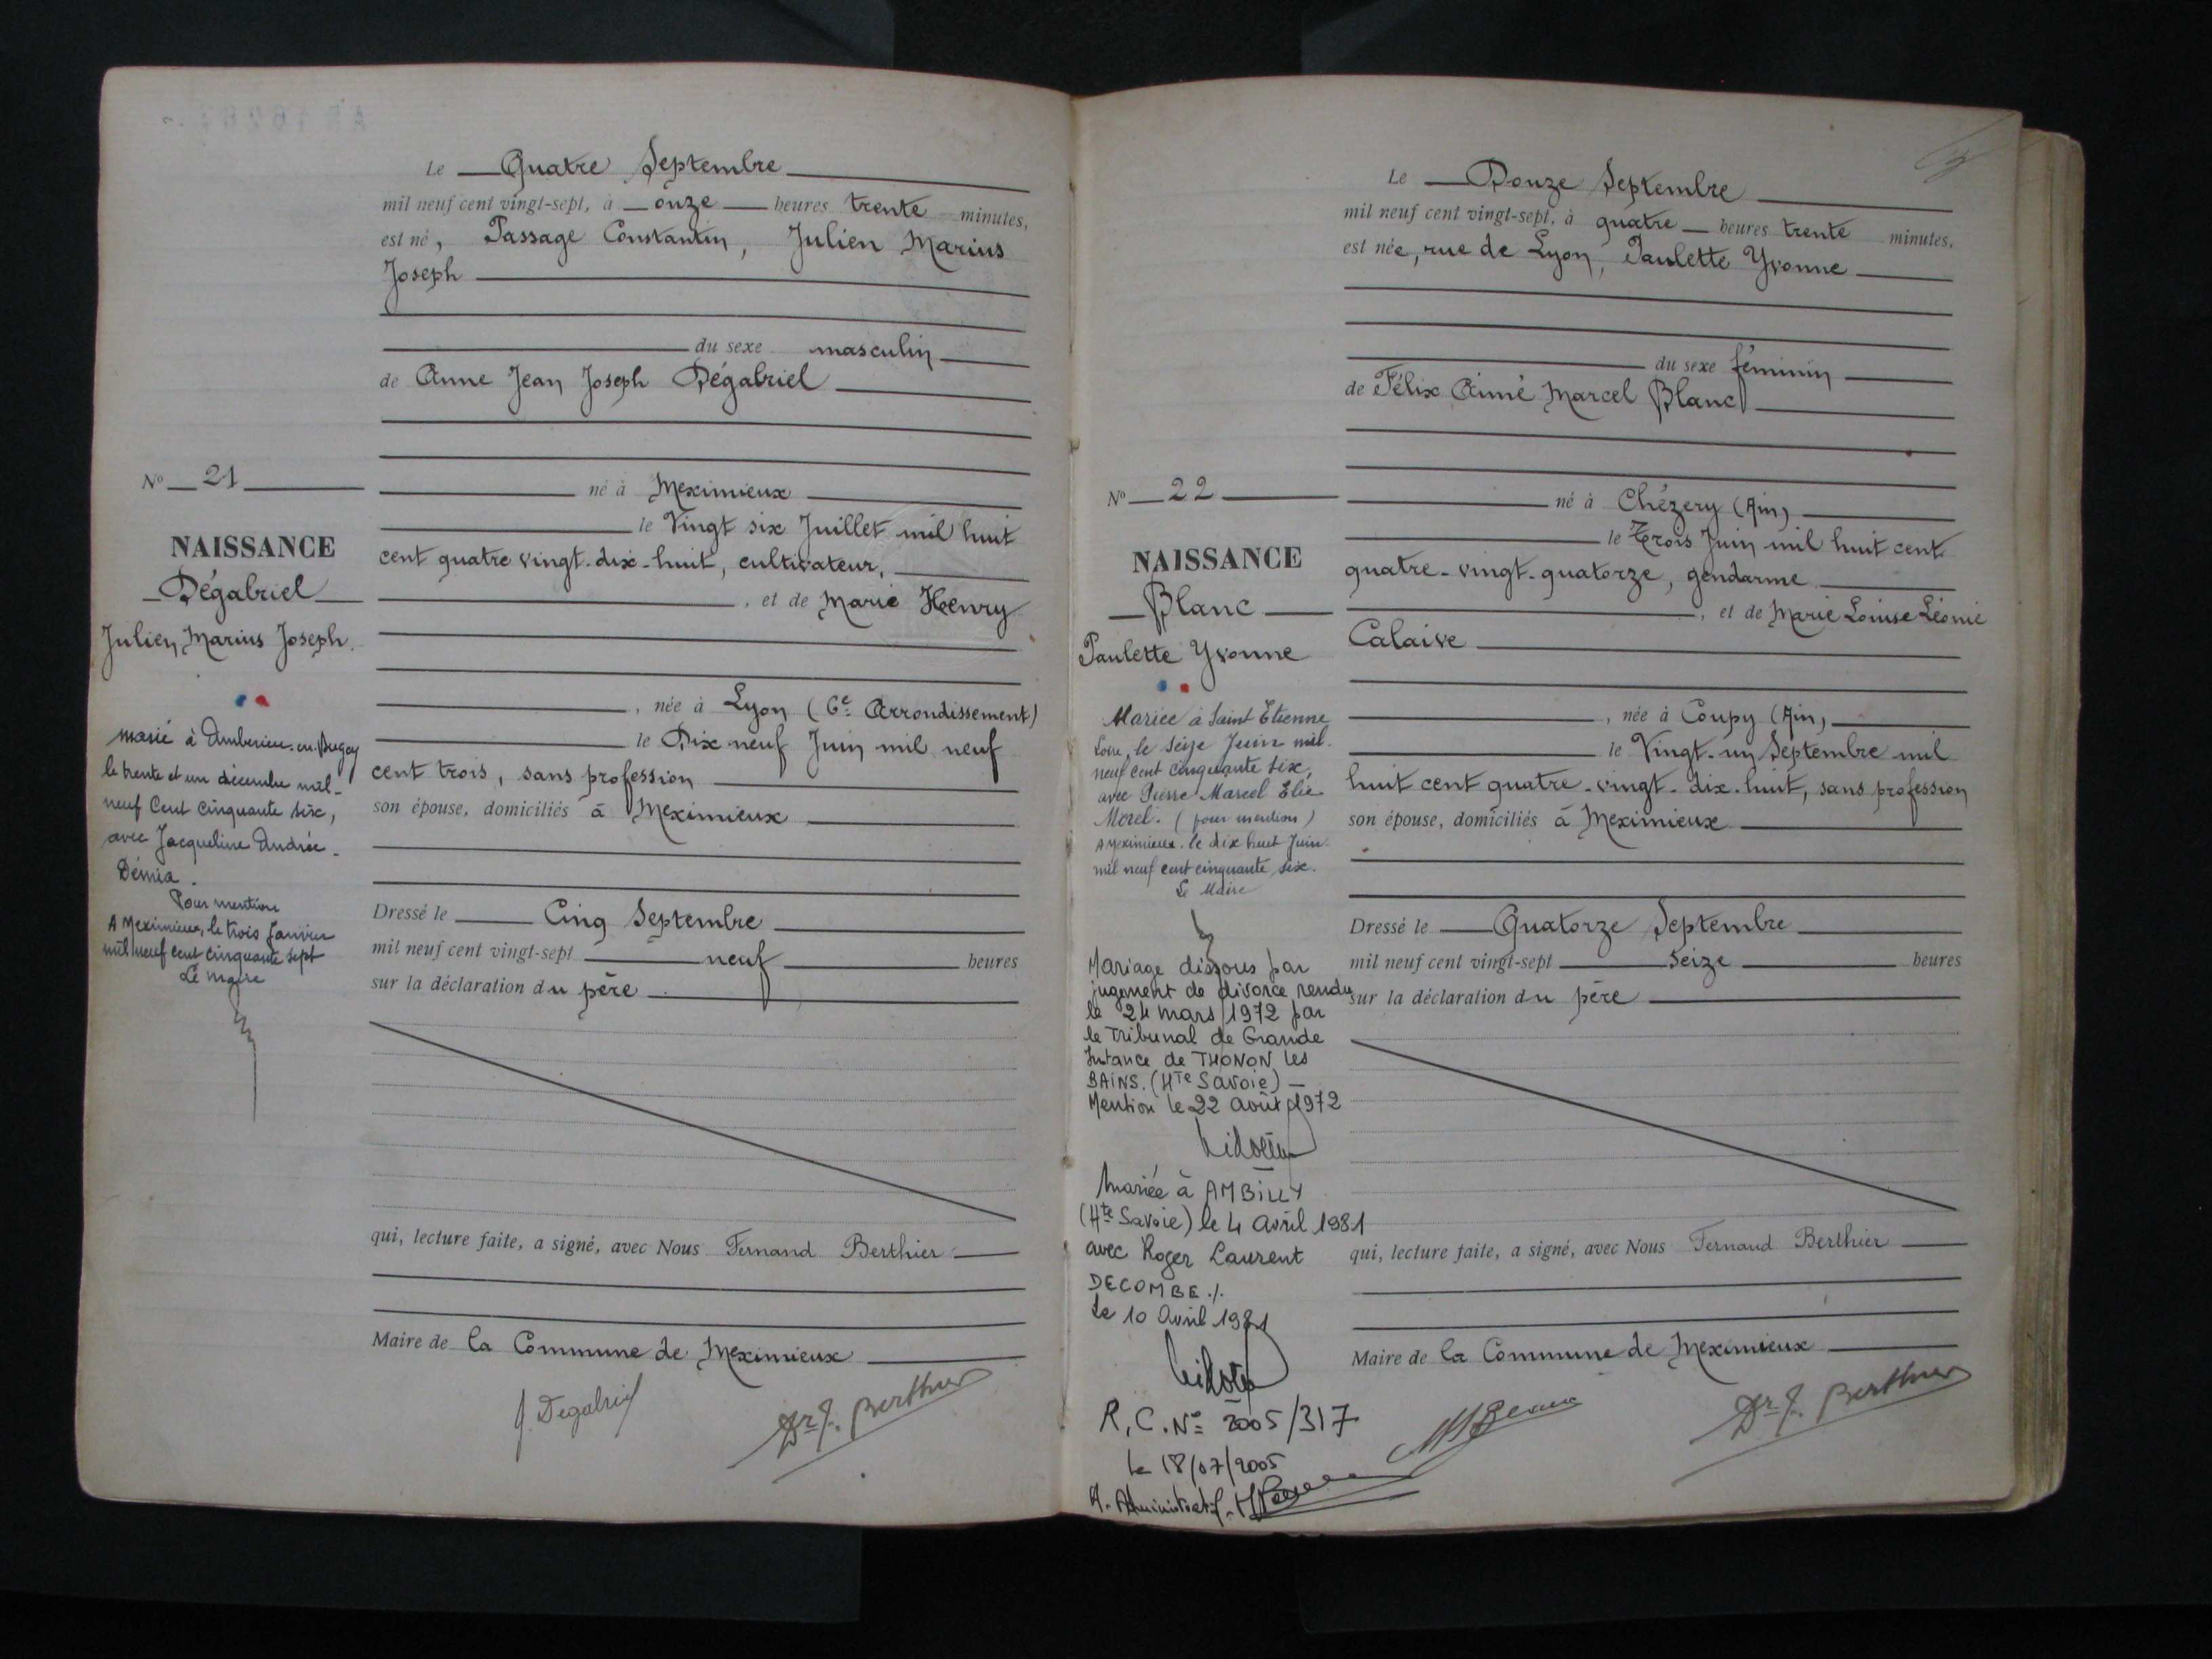 Le Quatre Septembre
mil neuf cent vingt-sept, à onze heures trente minutes,
est né, Passage Constantin, Julien Marius
Joseph
du sexe masculin
de Anne Jean Joseph Dégabriel
né à Meximieux
le Vingt six Juillet mil huit
cent quatre vingt-dix-huit, cultivateur,
, et de Marie Henry
, née à Lyon (6e Arrondissement)
le Dix neuf Juin mil neuf
cent trois, sans profession
son épouse, domiciliés à Meximieux
Dressé le Cinq Septembre
mil neuf cent vingt-sept neuf heures
sur la déclaration du père
qui, lecture faite, a signé, avec Nous Fernand Berthier
Maire de la Commune de Meximieux
J. Degabriel
Dr F. Berthier
No 21
NAISSANCE
Dégabriel
Julien Marius Joseph.
marié à Ambérieu-en-Bugey
le trente et un décembre mil-
neuf Cent cinquante six,
avec Jacqueline Andrée
Démia.
Pour mention
A Meximieux, le trois Janvier
mil neuf cent cinquante sept
Le maire
Le Douze Septembre
mil neuf cent vingt-sept, à quatre heures trente minutes,
est née, rue de Lyon, Paulette Yvonne
du sexe féminin
de Félix Aimé Marcel Blanc
né à Chézery (Ain)
le Trois Juin mil huit cent
quatre-vingt-quatorze, gendarme
, et de Marie Louise Léonie
Calaive
, née à Coupy (Ain)
le Vingt-un Septembre mil
huit cent quatre-vingt-dix-huit, sans profession
son épouse, domiciliés à Meximieux
Dressé le Quatorze Septembre
mil neuf cent vingt-sept seize heures
sur la déclaration du père
qui, lecture faite, a signé, avec Nous Fernand Berthier
Maire de la Commune de Meximieux
Dr F. Berthier
No 22
NAISSANCE
Blanc
Paulette Yvonne
Mariée à Saint Etienne
Loire, le seize Juin mil
neuf cent cinquante six,
avec Pierre Marcel Elie
Morel. (pour mention)
A Meximieux. le dix huit Juin
mil neuf cent cinquante six.
Le Maire
Mariage dissous par
jugement de divorce rendu
le 24 mars 1972 par
le Tribunal de Grande
Instance de THONON les
BAINS. (Hte Savoie) –
Mention le 22 août 1972
Mariée à AMBILLY
(Hte Savoie) le 4 avril 1981
avec Roger Laurent
DECOMBE ./.
Le 10 avril 1981
R.C. No 2005/317
le 18/07/2005
A. Administratif.